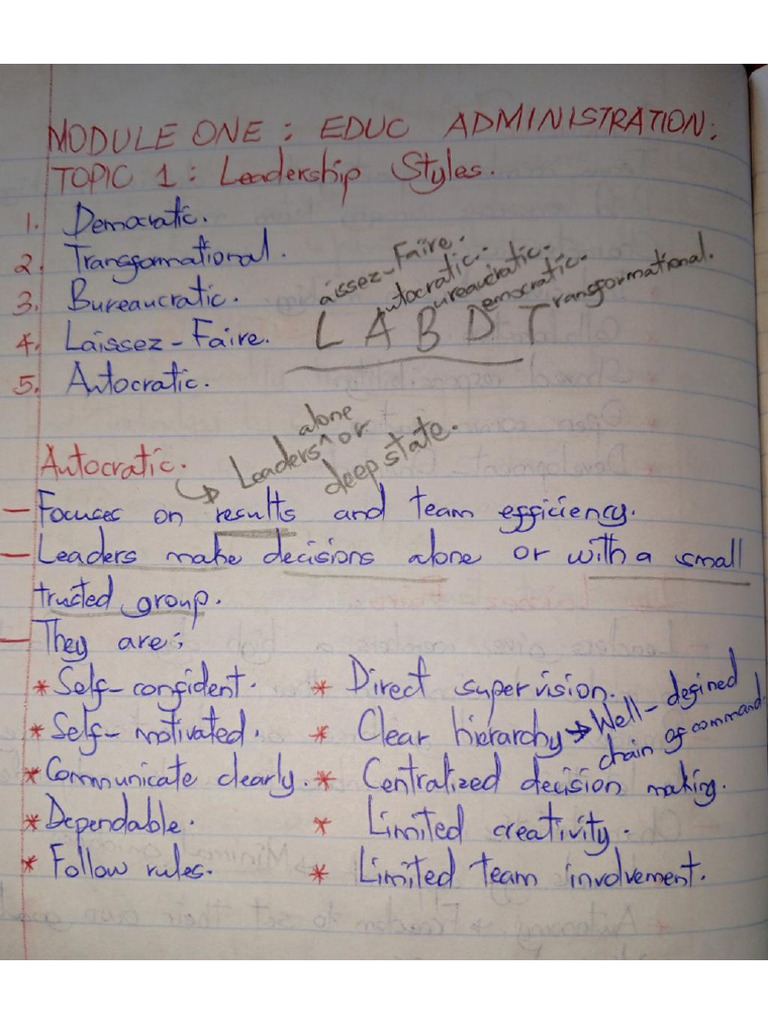 MODULE ONE : EDUC ADMINISTRATION:
TOPIC 1 : Leadership Styles.
1. Democratic.
2. Transformational.
3. Bureaucratic.
4. Laissez-Faire.
5. Autocratic.
Laissez-Faire.
Autocratic.
Bureaucratic.
Democratic.
Transformational.
Autocratic.
Leaders ^ alone or
deep state.
– Focuses on results and team efficiency.
– Leaders make decisions alone or with a small
trusted group.
– They are;
* Self-confident. * Direct supervision.
* Self-motivated. * Clear hierarchy → Well-defined
chain of command.
* Communicate clearly. * Centralized decision making.
* Dependable. * Limited creativity.
* Follow rules. * Limited team involvement.